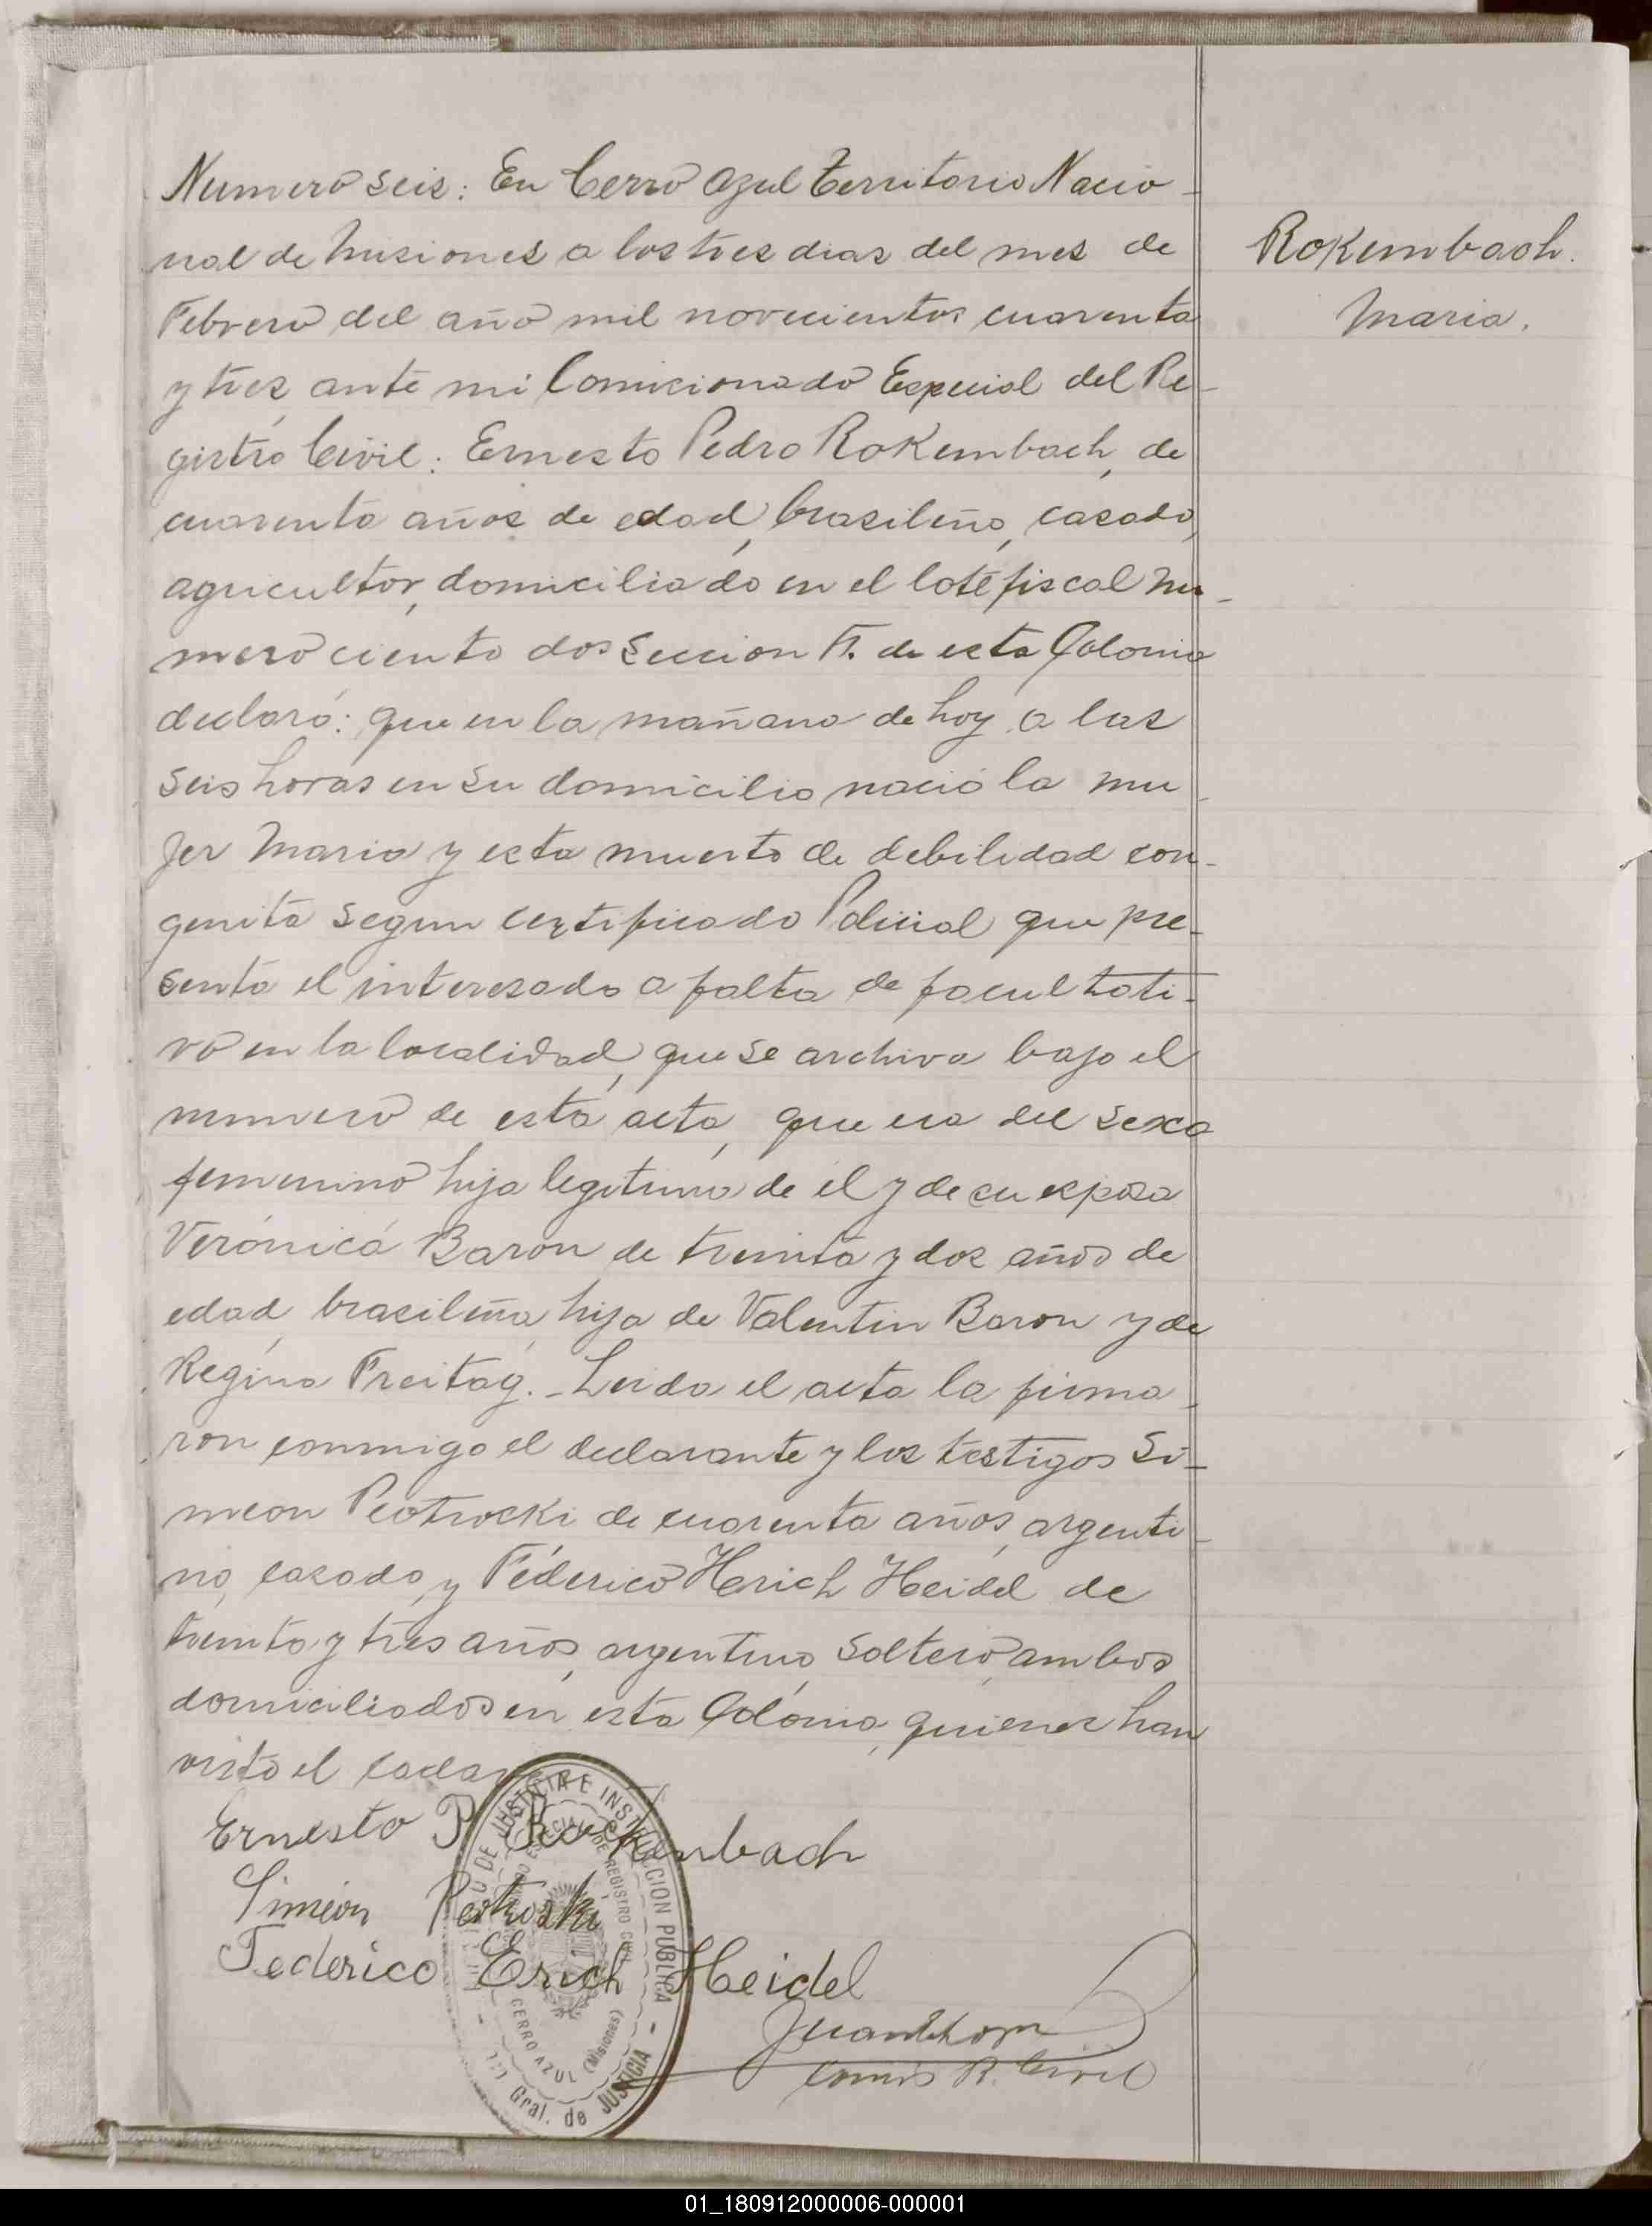 Numero seis: En Cerro Azul Territorio Nacio-
nal de Misiones a los tres dias del mes de
Febrero del año mil novecientos cuarenta
y tres, ante mi Comicionado Especial del Re-
gistro Civil: Ernesto Pedro Rokembach, de
cuarenta años de edad, brasileño, casado,
agricultor, domiciliado en el lote fiscal nu-
mero ciento dos Seccion A. de esta Colonia
declaró: que en la mañana de hoy a las
seis horas en su domicilio nació la mu-
jer Maria y esta muerto de debilidad con-
genita segun certificado Policial que pre-
senta el interesado a falta de facultati-
vo en la localidad, que se archiva bajo el
numero de esta acta, que era del sexo
femenino hija legitima de el y de su esposa
Verónica Baron de treinta y dos años de
edad, brasileña, hija de Valentin Baron y de
Regina Freitag. - Leida el acta la firma-
ron conmigo el declarante y los testigos Si-
meon Peotroski de cuarenta años, argenti-
no, casado, y Féderico Herich Heidel de
treinta y tres años, argentino, soltero, ambos
domiciliados en esta Colonia, quienes han
visto el
Rokembach.
Maria.
Ernesto P. Rockenbach
Simeon Peotroski
Federico Erich Heidel
Comis R. Civil
DE JUSTICIA E INSTRUCCION PUBLICA
ESPECIAL DE REGISTRO CIVIL
CERRO AZUL (Misiones)
Gral. de JUSTICIA
01_180912000006-000001